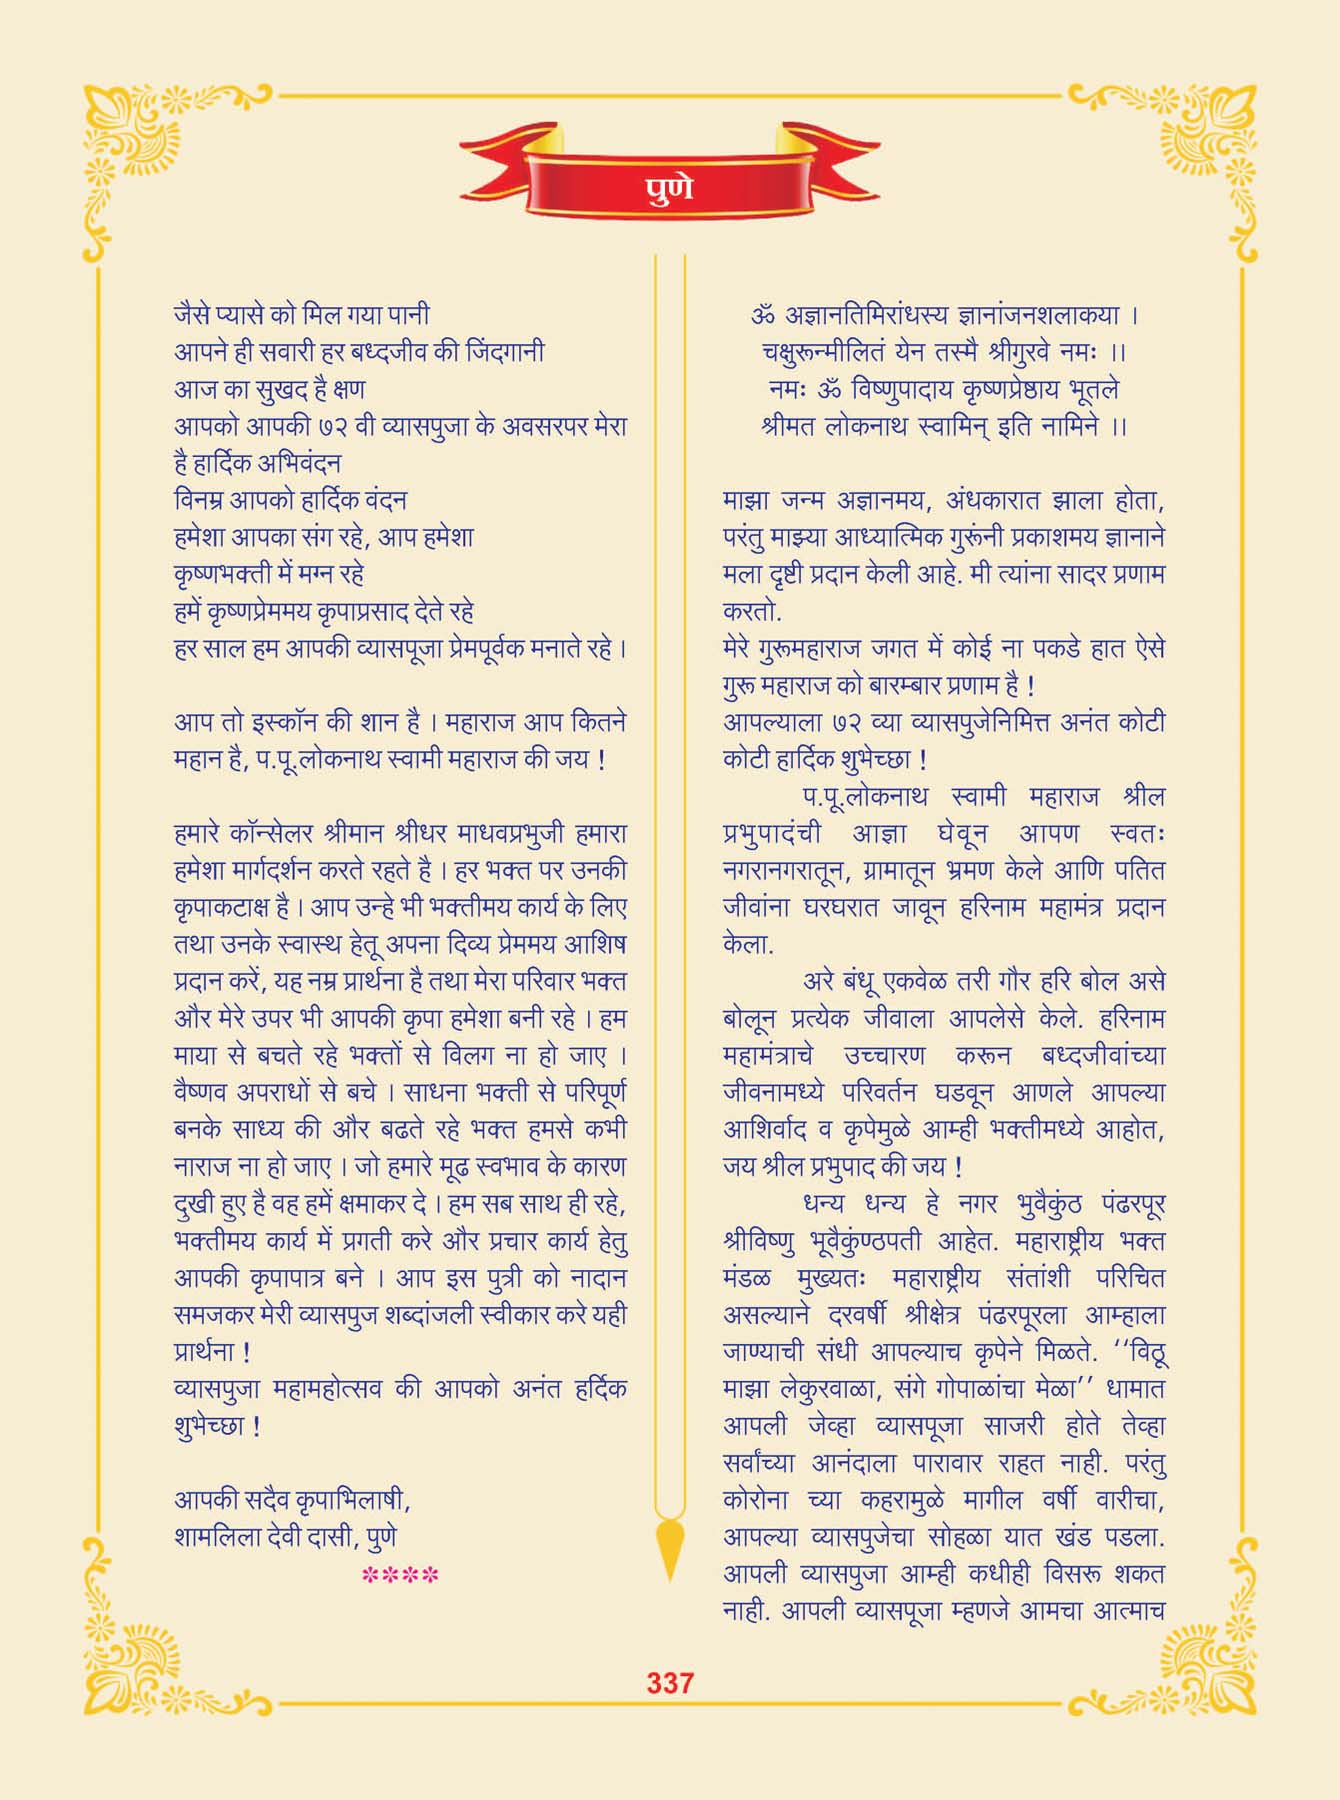 पुणे
जैसे प्यासे को मिल गया पानी
आपने ही सवारी हर बध्दजीव की जिंदगानी
आज का सुखद है क्षण
आपको आपकी ७२ वी व्यासपुजा के अवसरपर मेरा
है हार्दिक अभिवंदन
विनम्र आपको हार्दिक वंदन
हमेशा आपका संग रहे, आप हमेशा
कृष्णभक्ती में मग्न रहे
हमें कृष्णप्रेममय कृपाप्रसाद देते रहे
हर साल हम आपकी व्यासपूजा प्रेमपूर्वक मनाते रहे ।
आप तो इस्कॉन की शान है । महाराज आप कितने
महान है, प.पू.लोकनाथ स्वामी महाराज की जय !
हमारे कॉन्सेलर श्रीमान श्रीधर माधवप्रभुजी हमारा
हमेशा मार्गदर्शन करते रहते है । हर भक्त पर उनकी
कृपाकटाक्ष है । आप उन्हे भी भक्तीमय कार्य के लिए
तथा उनके स्वास्थ हेतू अपना दिव्य प्रेममय आशिष
प्रदान करें, यह नम्र प्रार्थना है तथा मेरा परिवार भक्त
और मेरे उपर भी आपकी कृपा हमेशा बनी रहे । हम
माया से बचते रहे भक्तों से विलग ना हो जाए ।
वैष्णव अपराधों से बचे । साधना भक्ती से परिपूर्ण
बनके साध्य की और बढते रहे भक्त हमसे कभी
नाराज ना हो जाए । जो हमारे मूढ स्वभाव के कारण
दुखी हुए है वह हमें क्षमाकर दे । हम सब साथ ही रहे,
भक्तीमय कार्य में प्रगती करे और प्रचार कार्य हेतु
आपकी कृपापात्र बने । आप इस पुत्री को नादान
समजकर मेरी व्यासपुज शब्दांजली स्वीकार करे यही
प्रार्थना !
व्यासपुजा महामहोत्सव की आपको अनंत हर्दिक
शुभेच्छा !
आपकी सदैव कृपाभिलाषी,
शामलिला देवी दासी, पुणे
****
ॐ अज्ञानतिमिरांधस्य ज्ञानांजनशलाकया ।
चक्षुरून्मीलितं येन तस्मै श्रीगुरवे नमः ।।
नमः ॐ विष्णुपादाय कृष्णप्रेष्ठाय भूतले
श्रीमत लोकनाथ स्वामिन् इति नामिने ।।
माझा जन्म अज्ञानमय, अंधकारात झाला होता,
परंतु माझ्या आध्यात्मिक गुरूंनी प्रकाशमय ज्ञानाने
मला दृष्टी प्रदान केली आहे. मी त्यांना सादर प्रणाम
करतो.
मेरे गुरूमहाराज जगत में कोई ना पकडे हात ऐसे
गुरू महाराज को बारम्बार प्रणाम है !
आपल्याला ७२ व्या व्यासपुजेनिमित्त अनंत कोटी
कोटी हार्दिक शुभेच्छा !
प.पू.लोकनाथ स्वामी महाराज श्रील
प्रभुपादंची आज्ञा घेवून आपण स्वतः
नगरानगरातून, ग्रामातून भ्रमण केले आणि पतित
जीवांना घरघरात जावून हरिनाम महामंत्र प्रदान
केला.
अरे बंधू एकवेळ तरी गौर हरि बोल असे
बोलून प्रत्येक जीवाला आपलेसे केले. हरिनाम
महामंत्राचे उच्चारण करून बध्दजीवांच्या
जीवनामध्ये परिवर्तन घडवून आणले आपल्या
आशिर्वाद व कृपेमुळे आम्ही भक्तीमध्ये आहोत,
जय श्रील प्रभुपाद की जय !
धन्य धन्य हे नगर भुवैकुंठ पंढरपूर
श्रीविष्णु भूवैकुंण्ठपती आहेत. महाराष्ट्रीय भक्त
मंडळ मुख्यतः महाराष्ट्रीय संतांशी परिचित
असल्याने दरवर्षी श्रीक्षेत्र पंढरपूरला आम्हाला
जाण्याची संधी आपल्याच कृपेने मिळते. ‘‘विठू
माझा लेकुरवाळा, संगे गोपाळांचा मेळा’’ धामात
आपली जेव्हा व्यासपूजा साजरी होते तेव्हा
सर्वांच्या आनंदाला पारावार राहत नाही. परंतु
कोरोना च्या कहरामुळे मागील वर्षी वारीचा,
आपल्या व्यासपुजेचा सोहळा यात खंड पडला.
आपली व्यासपुजा आम्ही कधीही विसरू शकत
नाही. आपली व्यासपूजा म्हणजे आमचा आत्माच
337